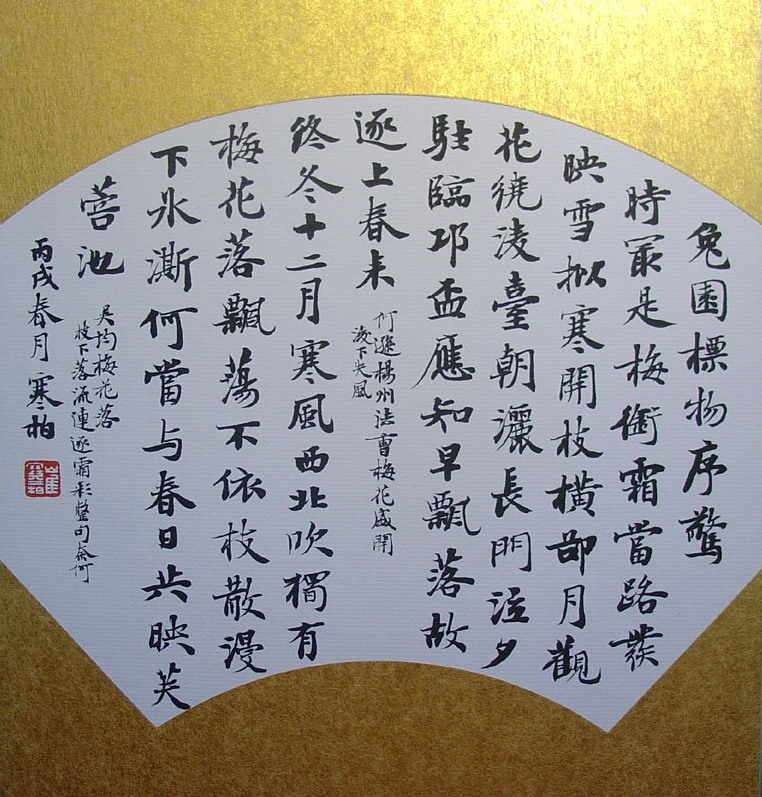 兔園標物序驚
時冣是梅銜霜當路發
映雪拟寒開枝横卻月觀
花繞淩臺朝灑長門泣夕
駐臨邛盃應知早飄落故
逐上春来
何遜楊州法曹梅花盛開
淩下失風
終冬十二月寒風西北吹獨有
梅花落飄蕩不依枝散漫
下氷澌何當与春日共映芙
蓉池
吳均梅花落
枝下落流連逐霜彩整句奈何
丙戌春月寒柏
崔寒柏